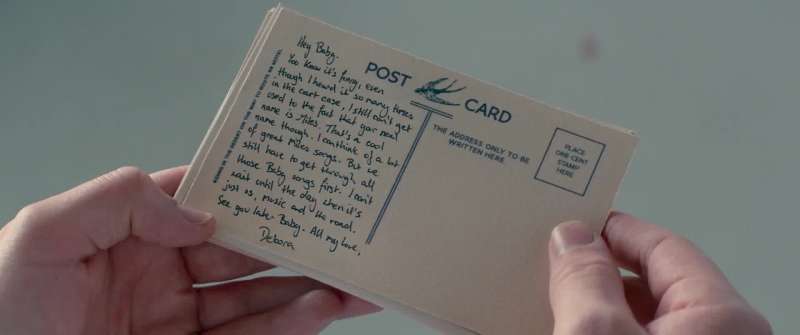 Hey Baby.
You Know it's funny, even
though I heard it so many times
in the cort case, I still can't get
used to the fact that your real
name is Miles. That's a cool
name though. I can think of a lot
of great Miles songs. But we
still have to get through all
those Baby songs first. I can't
wait until the day when it's
just us, music and the road.
See you later Baby. All my love,
Debora
POST CARD
THE ADDRESS ONLY TO BE
WRITTEN HERE
PLACE
ONE CENT
STAMP
HERE